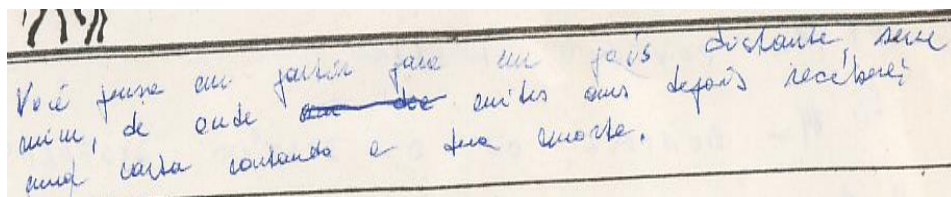 Você pensa em partir para um país distante, sem
mim, de onde muitos anos depois receberei
uma carta contando a tua morte.